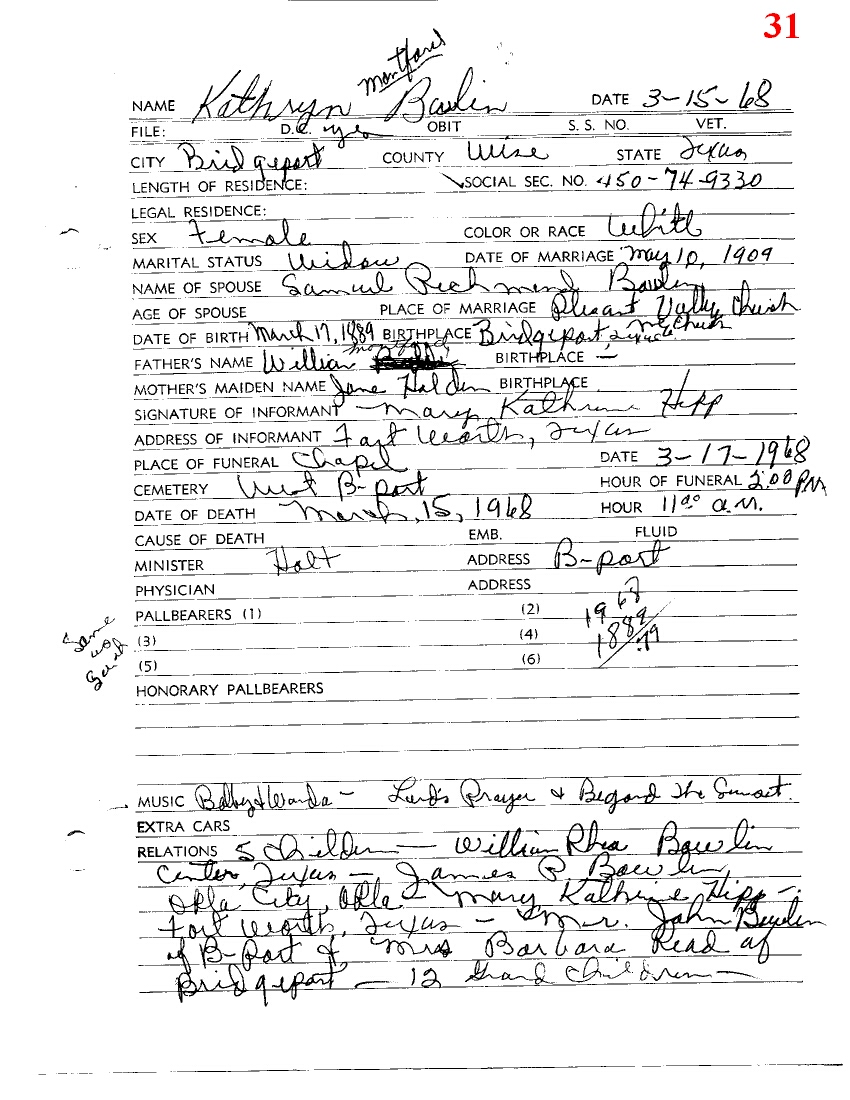 31
Montford
NAME Kathryn Bowlin DATE 3-15-68
FILE: D.C. yes OBIT S. S. NO. VET.
CITY Bridgeport COUNTY Wise STATE Texas
LENGTH OF RESIDENCE: SOCIAL SEC. NO. 450-74-9330
LEGAL RESIDENCE:
SEX Female COLOR OR RACE White
MARITAL STATUS Widow DATE OF MARRIAGE May 10, 1909
NAME OF SPOUSE Samuel Richmond Bowlin
AGE OF SPOUSE PLACE OF MARRIAGE Pleasant Vally Church
DATE OF BIRTH March 17, 1889 BIRTHPLACE Bridgeport, Texas
FATHER'S NAME William Montford BIRTHPLACE —
MOTHER'S MAIDEN NAME Jane Holden BIRTHPLACE
SIGNATURE OF INFORMANT — Mary Kathrine Hipp
ADDRESS OF INFORMANT Fort Worth, Texas
PLACE OF FUNERAL Chapel DATE 3-17-1968
CEMETERY West B-port HOUR OF FUNERAL 2:00 PM
DATE OF DEATH March, 15, 1968 HOUR 11 00 a.m.
CAUSE OF DEATH EMB. FLUID
MINISTER Holt ADDRESS B-port
PHYSICIAN ADDRESS
PALLBEARERS (1) (2) 1968
Same as
(3) (4) 1889
79
(5) (6)
HONORARY PALLBEARERS
MUSIC Bobby & Wanda - Lord's Prayer & Beyond The Sunset.
EXTRA CARS
RELATIONS 5 Children — William Rhea Bowlin
Center, Texas — James R Bowlin
Okla City, Okla - Mary Kathrine Hipp -
Fort Worth, Texas - & Mr. John Bowlin
of B-Port & Mrs Barbara Read of
Bridgeport — 12 Grand Children —